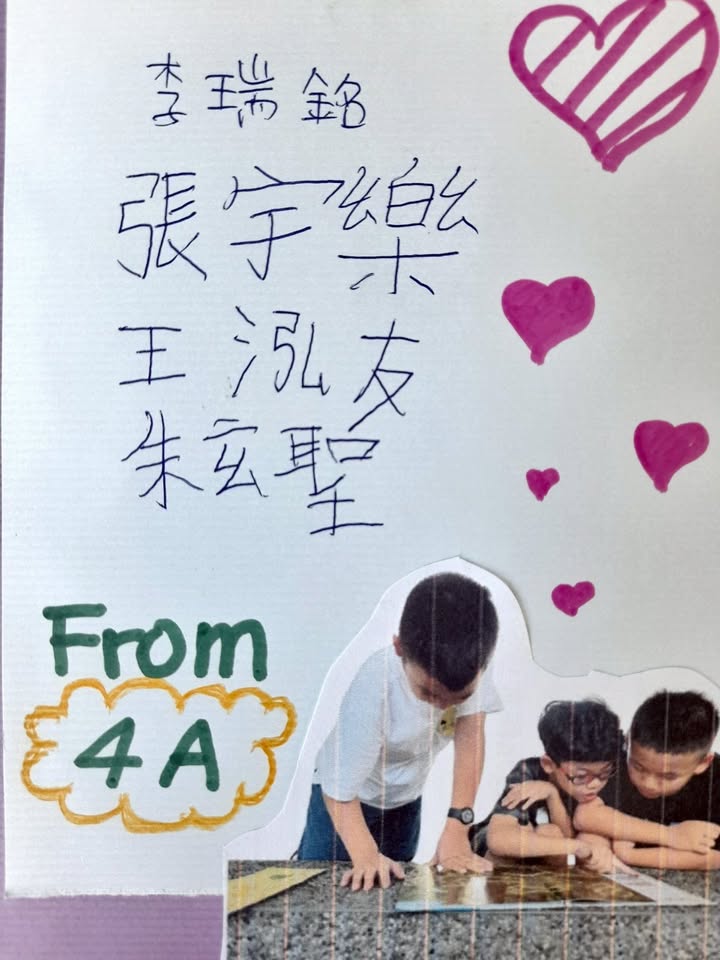 李瑞銘
張宇樂
王泓友
朱玄聖
From
4A